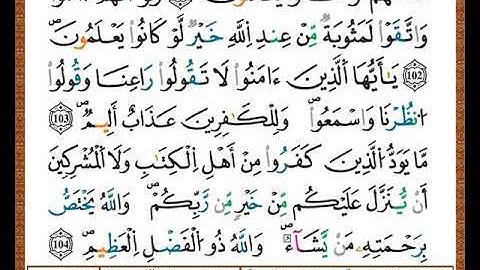 وَاتَّقَوْا لَمَثُوبَةٌ مِّنْ عِندِ اللَّهِ خَيْرٌ لَّوْ كَانُوا يَعْلَمُونَ
١٠٢ يَٰٓأَيُّهَا الَّذِينَ ءَامَنُوا لَا تَقُولُوا رَاعِنَا وَقُولُوا
انظُرْنَا وَاسْمَعُوا وَلِلْكَٰفِرِينَ عَذَابٌ أَلِيمٌ ١٠٣
مَّا يَوَدُّ الَّذِينَ كَفَرُوا مِنْ أَهْلِ الْكِتَٰبِ وَلَا الْمُشْرِكِينَ
أَن يُنَزَّلَ عَلَيْكُم مِّنْ خَيْرٍ مِّن رَّبِّكُمْ وَاللَّهُ يَخْتَصُّ
بِرَحْمَتِهِ مَن يَشَآءُ وَاللَّهُ ذُو الْفَضْلِ الْعَظِيمِ ١٠٤